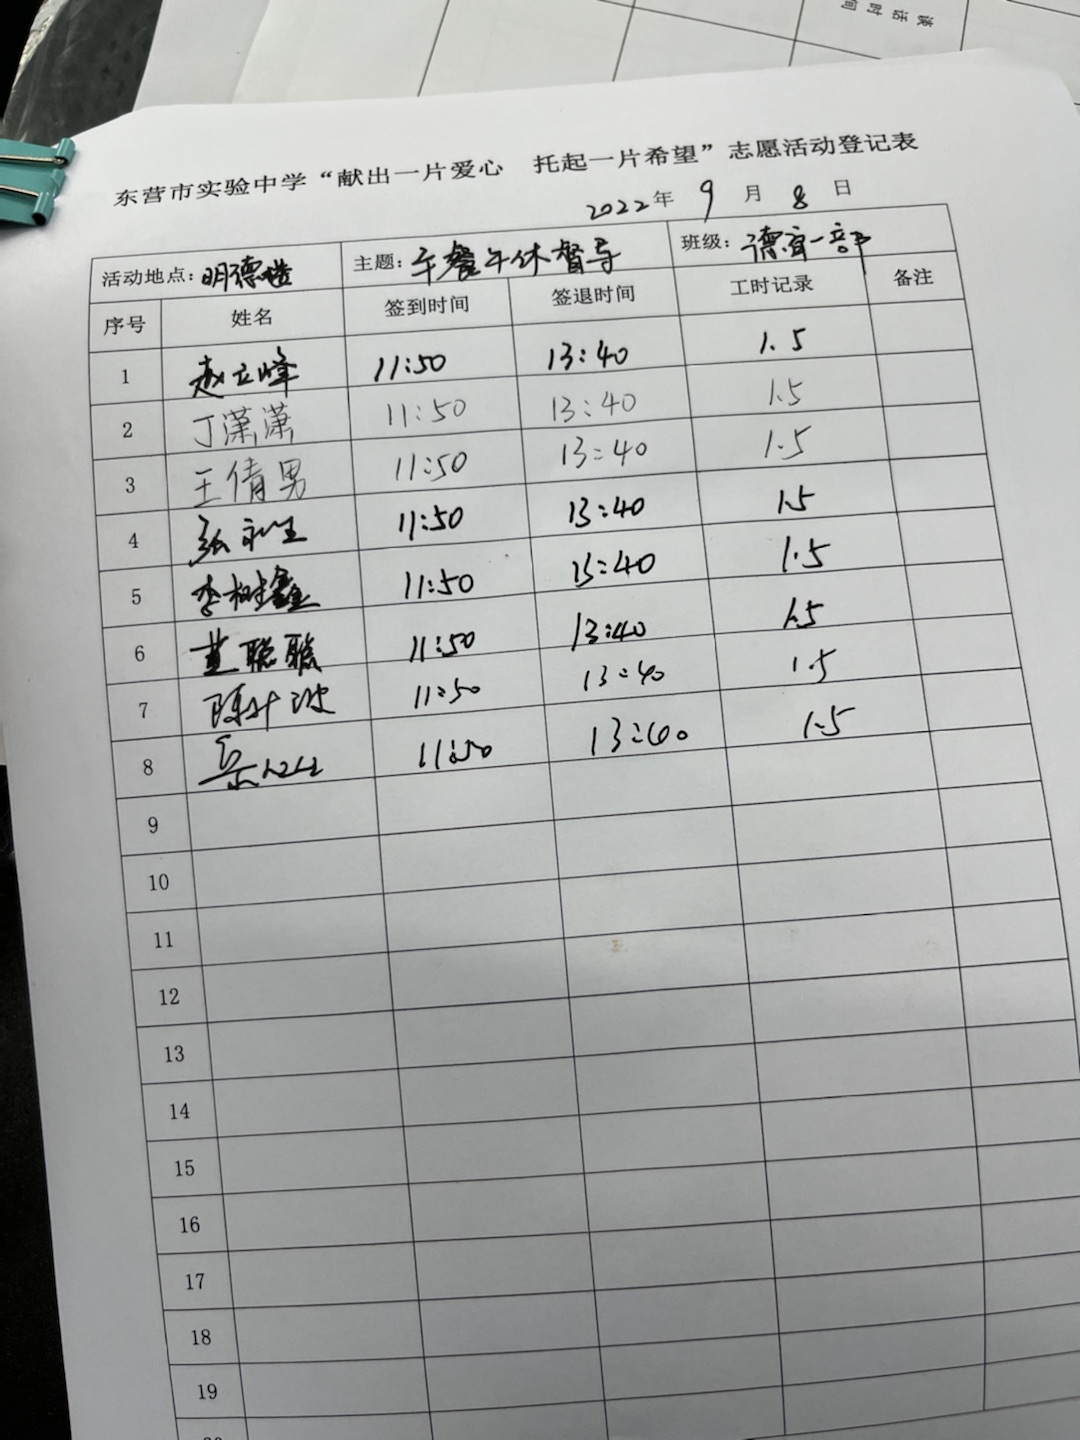 读 活 时 间
东营市实验中学“献出一片爱心 托起一片希望”志愿活动登记表
2022年 9 月 8 日
活动地点：明德楼 主题：午餐午休督导 班级：德育一部
序号 姓名 签到时间 签退时间 工时记录 备注
1 赵立峰 11:50 13:40 1.5
2 丁潇潇 11:50 13:40 1.5
3 王倩男 11:50 13:40 1.5
4 11:50 13:40 1.5
5 李树鑫 11:50 13:40 1.5
6 聪聪 11:50 13:40 1.5
7 陈 11:50 13:40 1.5
8 11:50 13:40 1.5
9
10
11
12
13
14
15
16
17
18
19